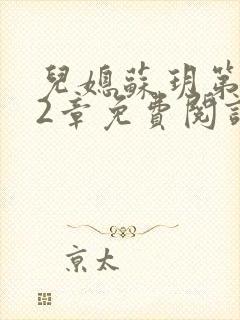 兒媳蘇玥第
2章免費閱讀
京太